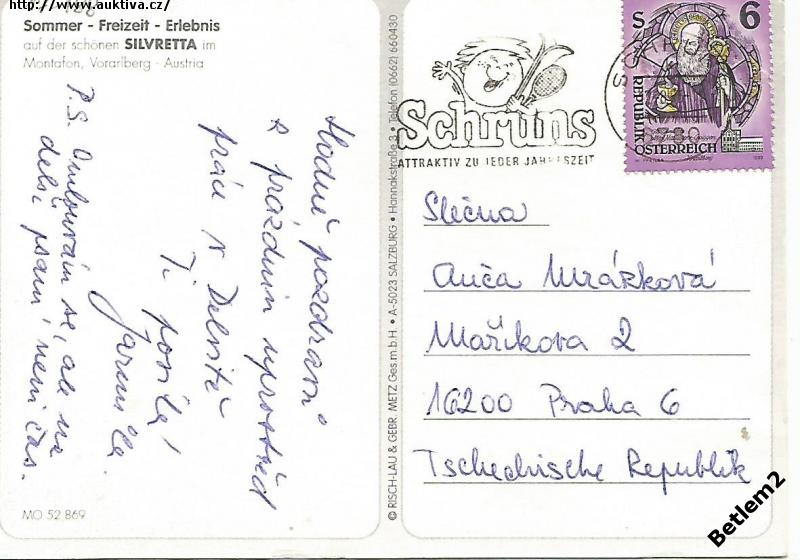 http://www.auktiva.cz/
Sommer - Freizeit - Erlebnis
auf der schönen SILVRETTA im
Montafon, Vorarlberg - Austria
Hodně pozdravů
z prázdnin uprostřed
prací v
Ti posílá
Jarmila
P.S. Omlouvám se, ale na
delší psaní není čas.
MO 52 869
© RISCH-LAU & GEBR. METZ Ges m b H • A-5023 SALZBURG • Hannakstraße 3 • Telefon (0662) 660430
Schruns
ATTRAKTIV ZU JEDER JAHRESZEIT
S 6
REPUBLIK
ÖSTERREICH
Slečna
Anča Mrázková
Maříkova 2
16200 Praha 6
Tschechische Republik
Betlem2